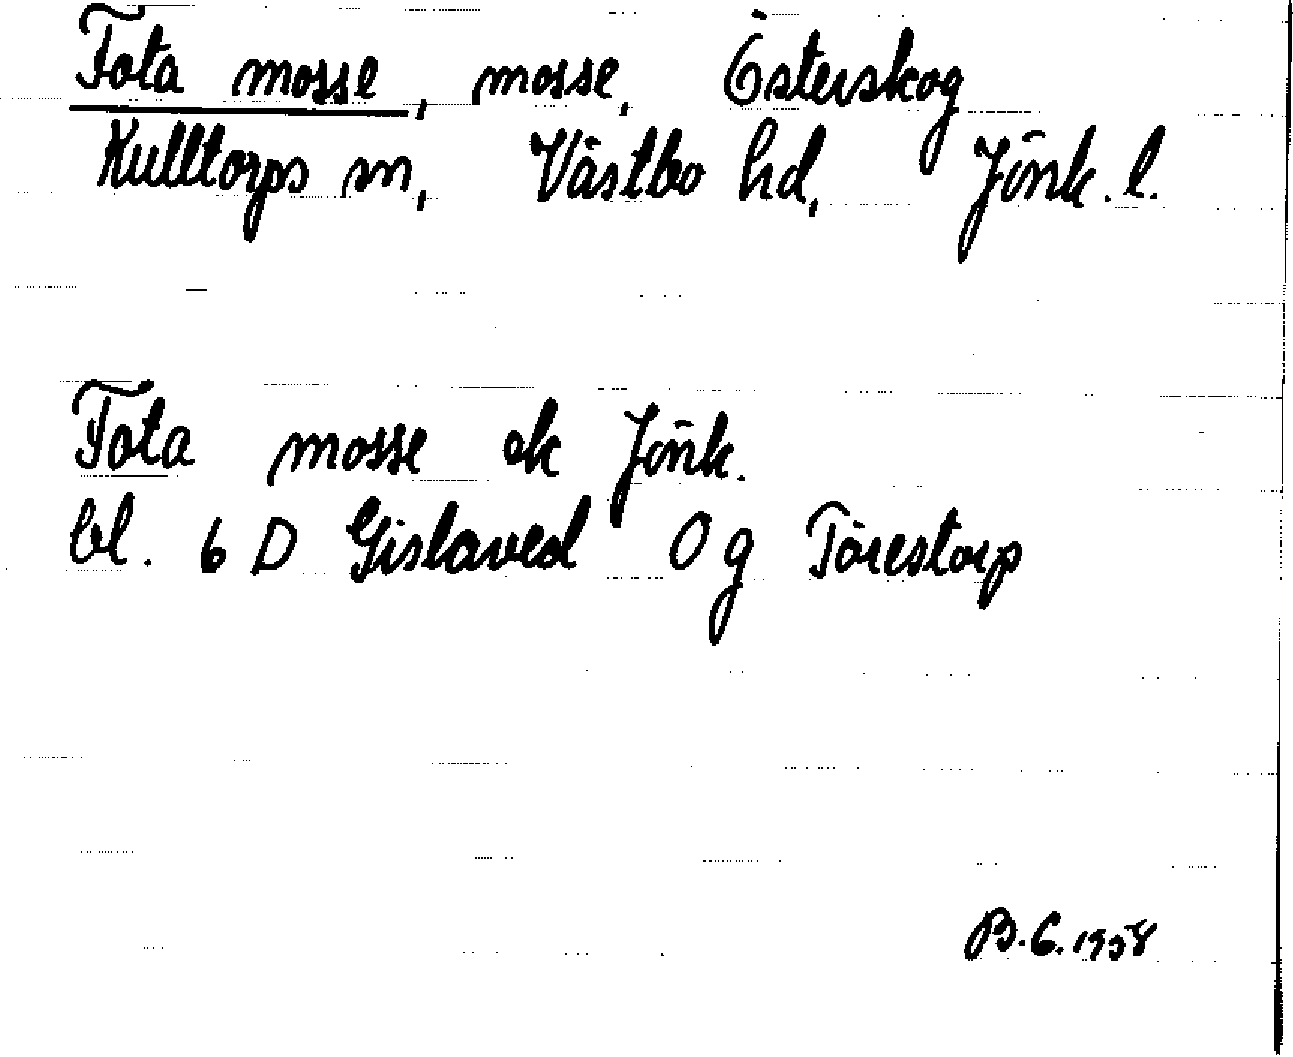 Fota mosse, mosse, Österskog
Kulltorps sn, Västbo hd, Jönk. l.
Fota mosse ek Jönk.
bl. 6 D Gislaved 0 g Törestorp
B.G. 1958